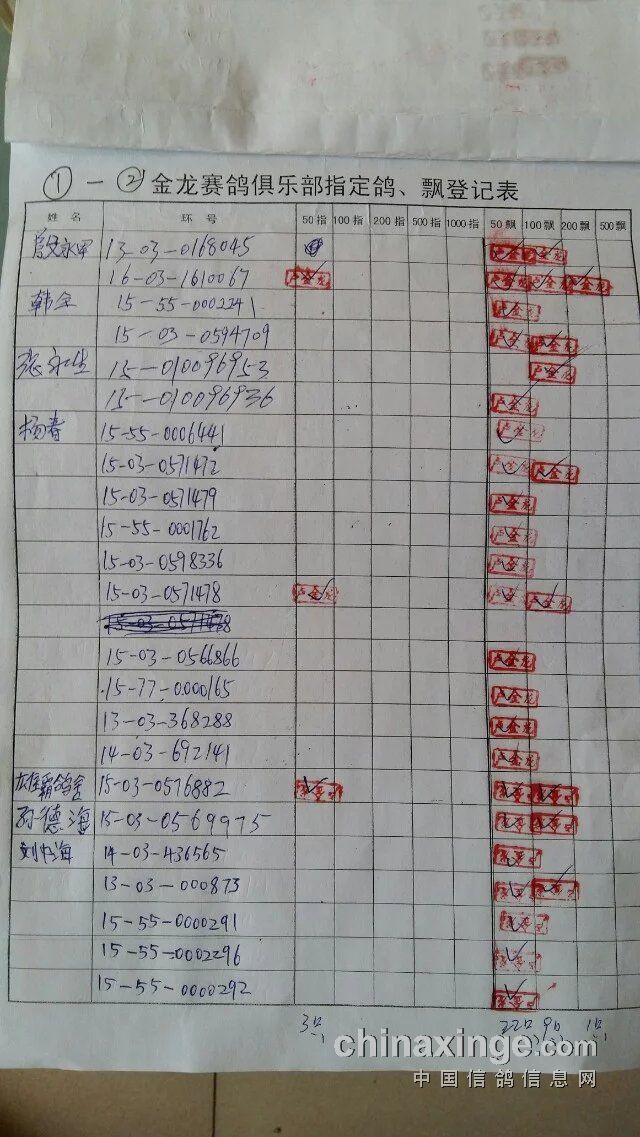 ① 一 ② 金龙赛鸽俱乐部指定鸽、飘登记表
姓 名 环 号 50 指 100 指 200 指 500 指 1000 指 50 飘 100 飘 200 飘 500 飘
永军 13-03-0168045 卢金龙 卢金龙
16-03-1610067 卢金龙 卢金龙 卢金龙 卢金龙
韩金 15-55-0002241 卢金龙
15-03-0594709 卢金龙 卢金龙
张永生 15-010096953 卢金龙
15-010096936 卢金龙
杨春 15-55-0006441 卢金龙
15-03-0571472 卢金龙 卢金龙
15-03-0571479 卢金龙
15-55-0001762 卢金龙
15-03-0598336 卢金龙
15-03-0571478 卢金龙 卢金龙 卢金龙
15-03-0566866 卢金龙
15-77-0000165 卢金龙
13-03-368288 卢金龙
14-03-692141 卢金龙
雄霸鸽舍 15-03-0576882
孙德海 15-03-0569975
刘 海 14-03-436565
13-03-000873
15-55-0000291
15-55-0002296
15-55-0000292
3只 22只 9只 1只
chinaxinge.com
中国信鸽信息网